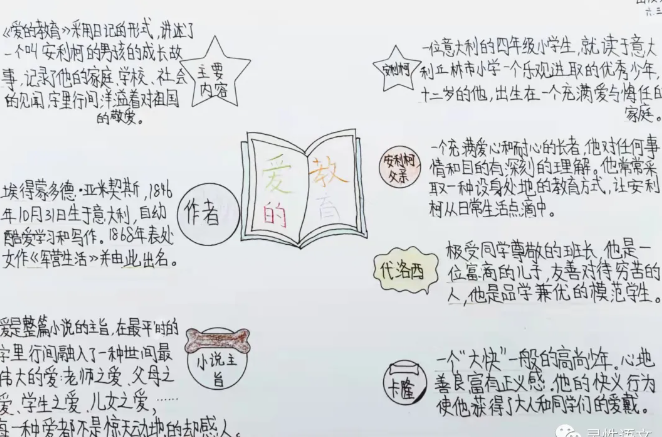 《爱的教育》采用日记的形式,讲述了
一个叫安利柯的男孩的成长故
事,记录了他的家庭、学校、社会
的见闻,字里行间洋溢着对祖国
的敬爱。
主要
内容
埃得蒙多德·亚米契斯,1846
年10月31日生于意大利,自幼
酷爱学习和写作。1868年表处
女作《军营生活》并由此出名。
作者
爱是整篇小说的主旨,在最平时的
字里行间融入了一种世间最
伟大的爱:老师之爱、父母之
爱、学生之爱、儿女之爱,……
每一种爱都不是惊天动地的却感人。
小说主
旨
爱的
教育
安利柯
一位意大利的四年级小学生,就读于意大
利丘林市小学一个乐观进取的优秀少年,
十二岁的他,出生在一个充满爱与
家庭。
安利柯
父亲
一个充满爱心和耐心的长者,他对任何事
情和目的有深刻的理解。他常常采
取一种设身处地的教育方式,让安利
柯从日常生活点滴中。
代洛西
极受同学尊敬的班长,他是一
位富商的儿子,友善对待穷苦的
人,他是品学兼优的模范学生。
卡隆
一个“大侠”一般的高尚少年。心地
善良富有正义感。他的侠义行为
使他获得了大人和同学们的爱戴。